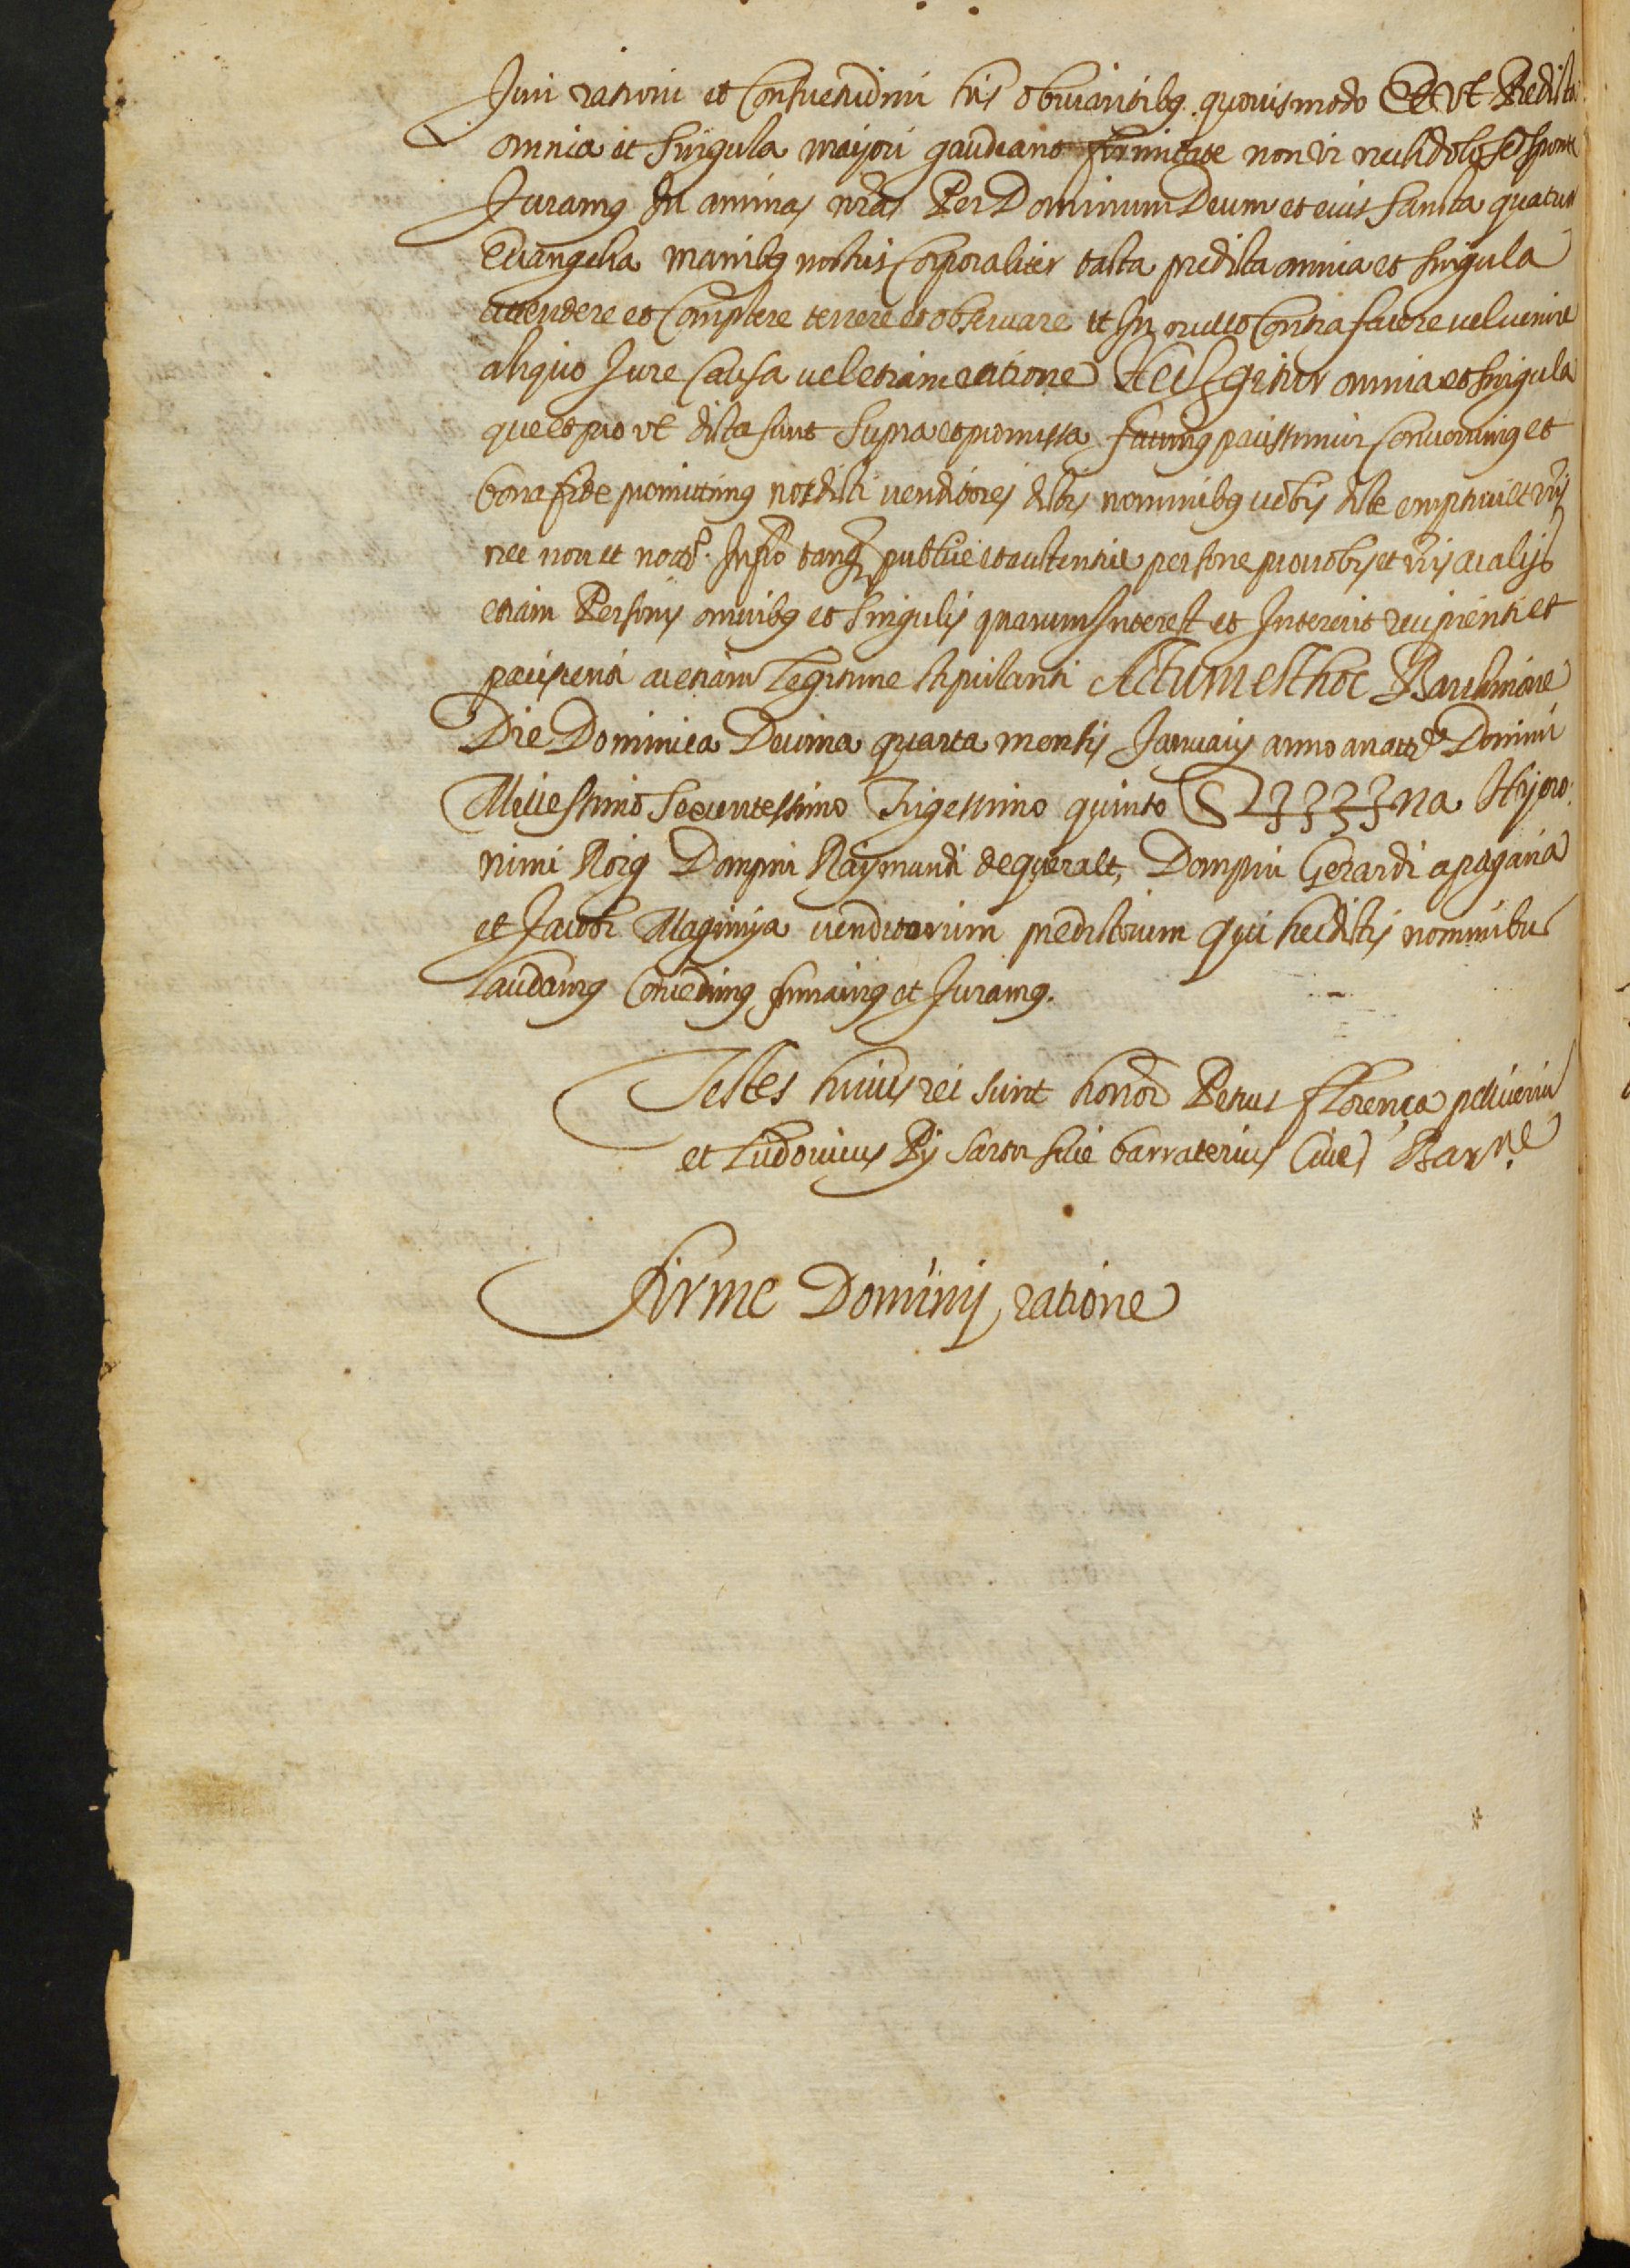 Juri rationi et Consuetudini his obviantibq. quovismodo Et vt Predicta
omnia et singula majori gaudeant firmitate non vi nec dolo sed sponte
Juramq In animas nras Per Dominum Deum et eius sancta quatuor
Evangelia manibq nostris Corporaliter tacta predicta omnia et singula
attendere et Complere tenere et observare et In nullo Contrafacere vel venire
aliquo Jure Causa vel etiam ratione Hec Igitur omnia et singula
que et pro vt dicta sunt supra et promissa facimq paciscimur Convenimq et
bona fide promittimq nos dicti venditores dictis nominibq vobis dicte emptrici et vris
nec non et notº. Infrº tanq publice et autentice persone pro vobis et vris ac alijs
etiam Personis omnibq et singulis quarum Interest et Intererit recipienti et
paciscenti ac etiam Legitime stipulanti Actum est hoc Barchinone
Die Dominica Decima quarta mensis Januarij anno a natte Domini
Millessimo Sexcentessimo Trigessimo quinto S????na Hijero
nimi Roig Dompni Raymundi de queralt, Dompni Gerardi apagaria
et Jacobi Maginya venditorum predictorum qui hec dictis nominibus
Laudamq Concedimq firmamq et Juramq.
Testes huius rei sunt honor Petrus florença
et Ludovicus Pij sartor sive barraterius Cives Barne
Firme Dominij ratione